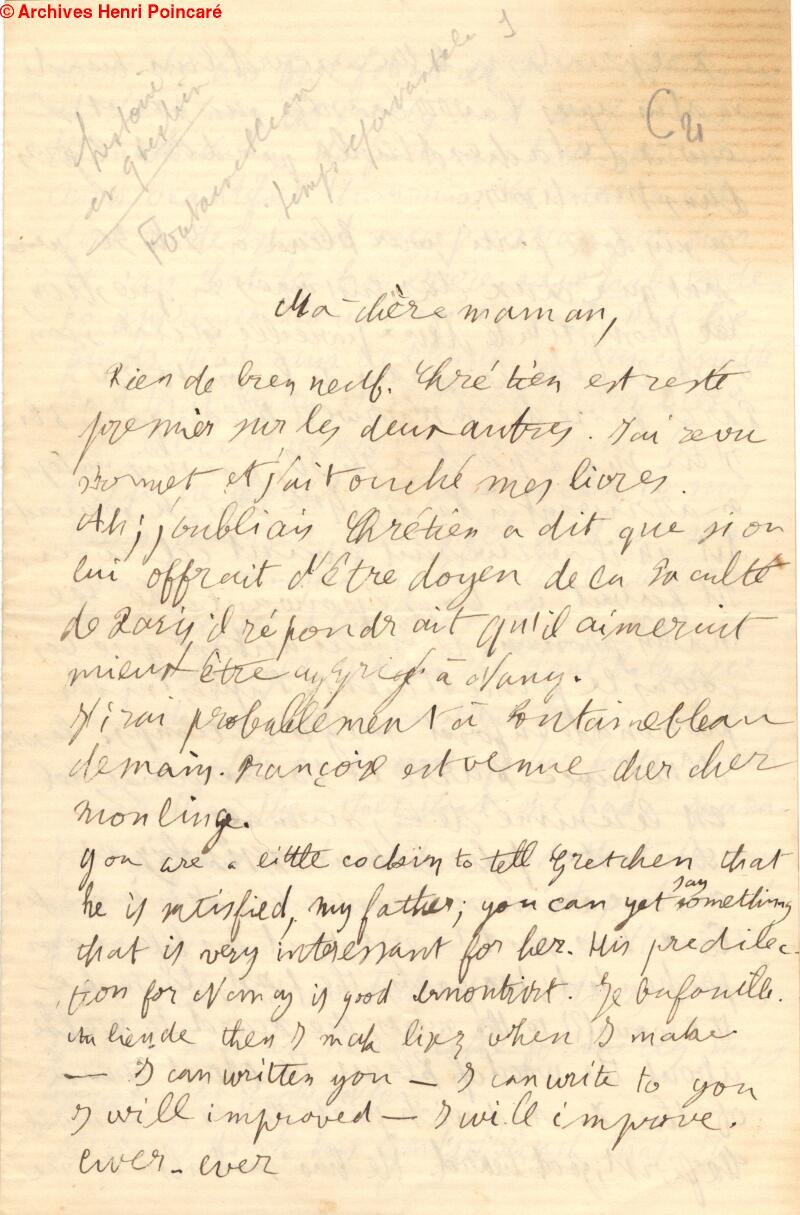 © Archives Henri Poincaré
histoire
et quartier
Fontainebleau
temps épouvantable
Ma chère maman,
Rien de bien neuf. Chrétien est resté
premier sur les deux autres. J'ai revu
Bonnet et j'ai touché mes livres.
Ah; j'oubliais Chrétien a dit que si on
lui offrait d'être doyen de la Faculté
de Paris il répondrait qu'il aimerait
mieux être agrégé à Nancy.
J'irai probablement à Fontainebleau
demain. Françoise est venue chercher
mon linge.
you are a little to tell Gretchen that
he is satisfied, my father; you can yet say something
that is very interessant for her. His predilec-
tion for Nancy is good. Je bafouille.
Au lieu de then I mak lisez when I make
— I can written you — I can write to you
I will improved — I will improve.
ewer - ever